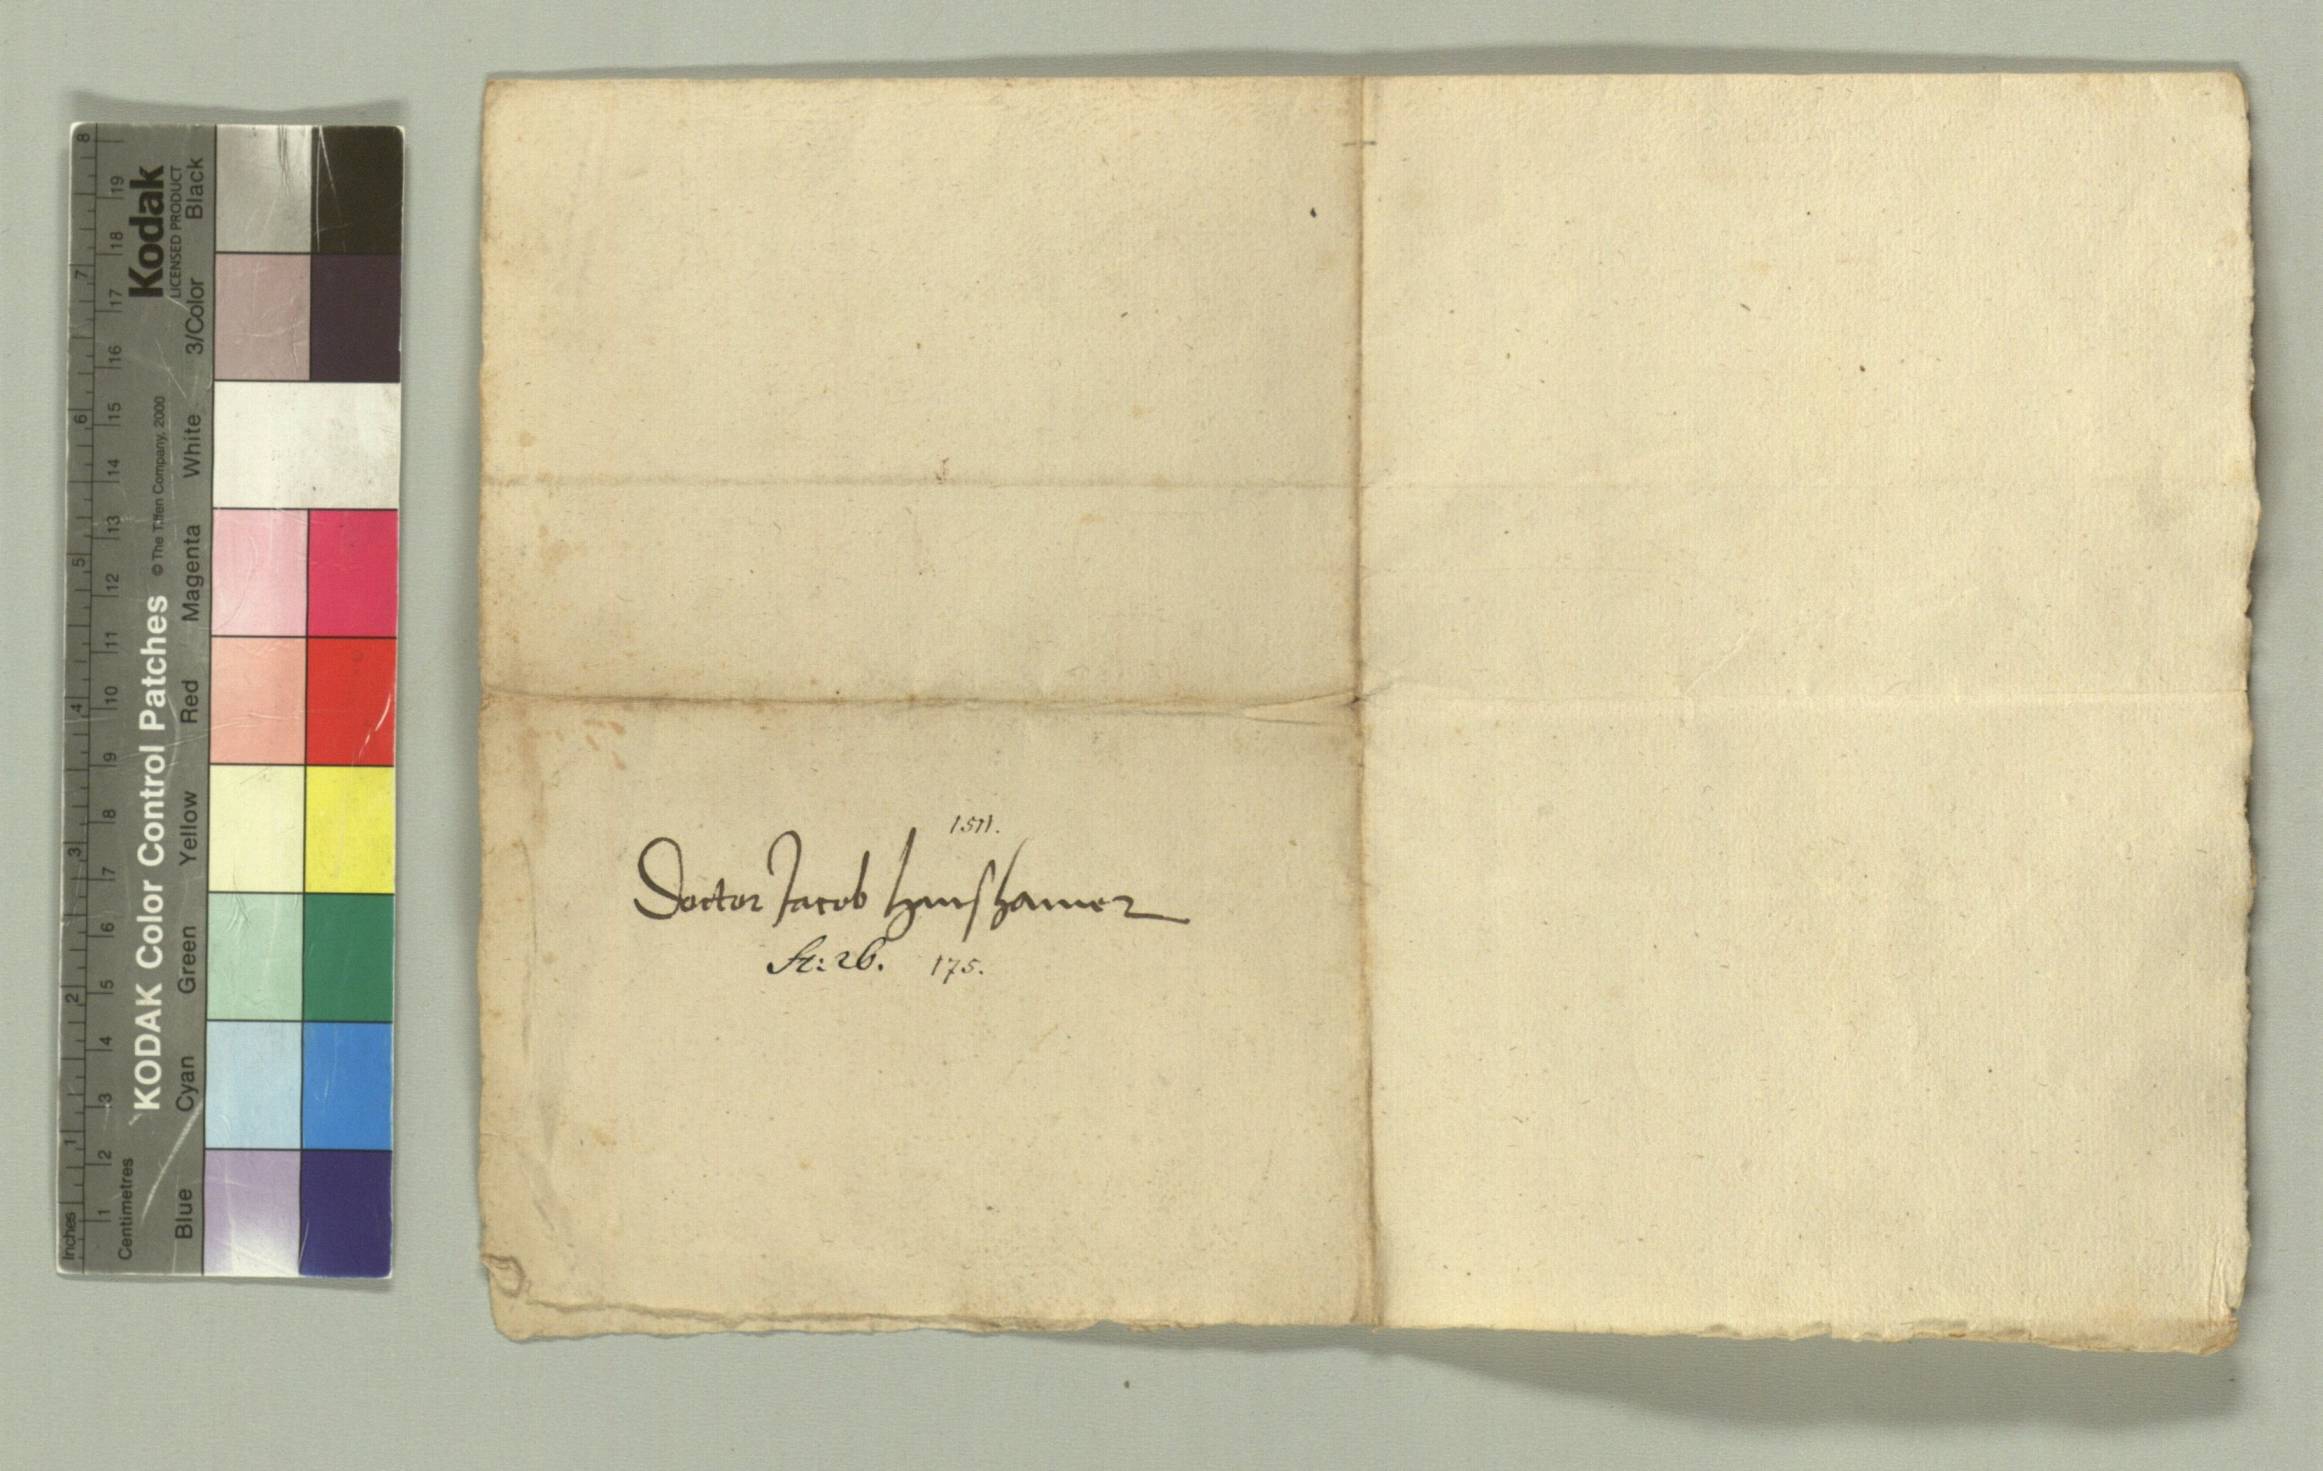 8 7 6 5 4 3 2 1 Inches
19 18 17 16 15 14 13 12 11 10 9 8 7 6 5 4 3 2 1 Centimetres
Kodak
LICENSED PRODUCT
KODAK Color Control Patches © The Tiffen Company, 2000
Black
3/Color
White
Magenta
Red
Yellow
Green
Cyan
Blue
1511.
Doctor Jacob
26. 175.